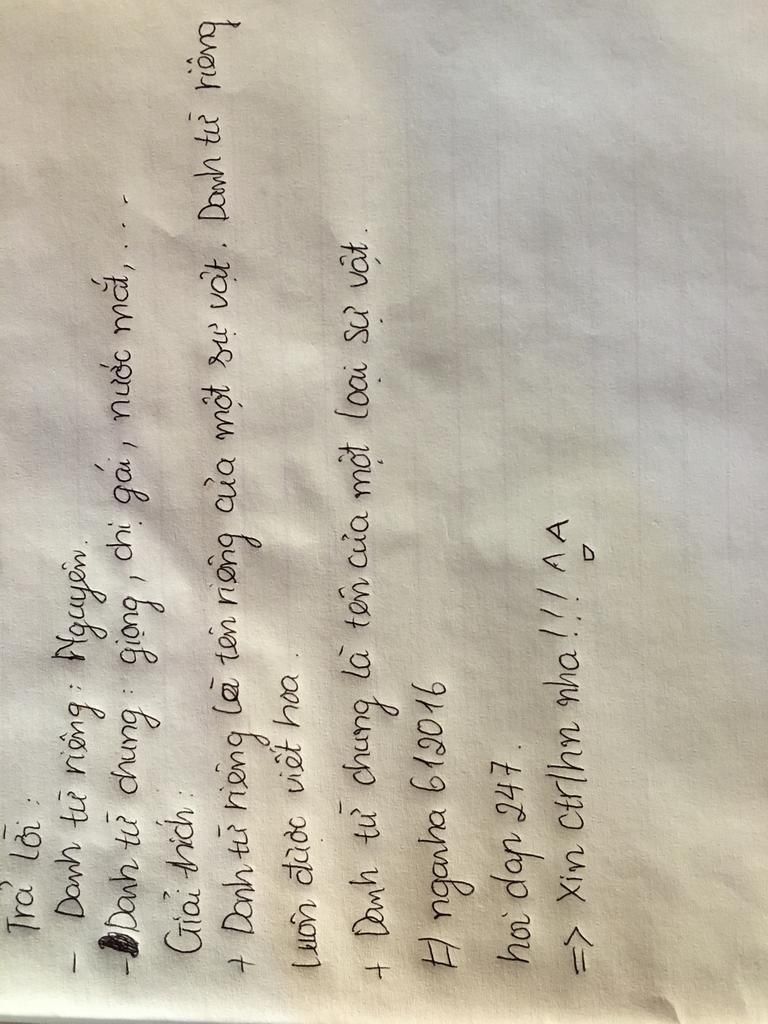 Trả lời:
- Danh từ riêng: Nguyên.
- Danh từ chung: giọng, chị gái, nước mắt,...
Giải thích:
+ Danh từ riêng là tên riêng của một sự vật. Danh từ riêng
luôn được viết hoa.
+ Danh từ chung là tên của một loại sự vật.
#) nganha612016
hoi dap 247.
=> Xin ctrlhn nha!!! ^▽^